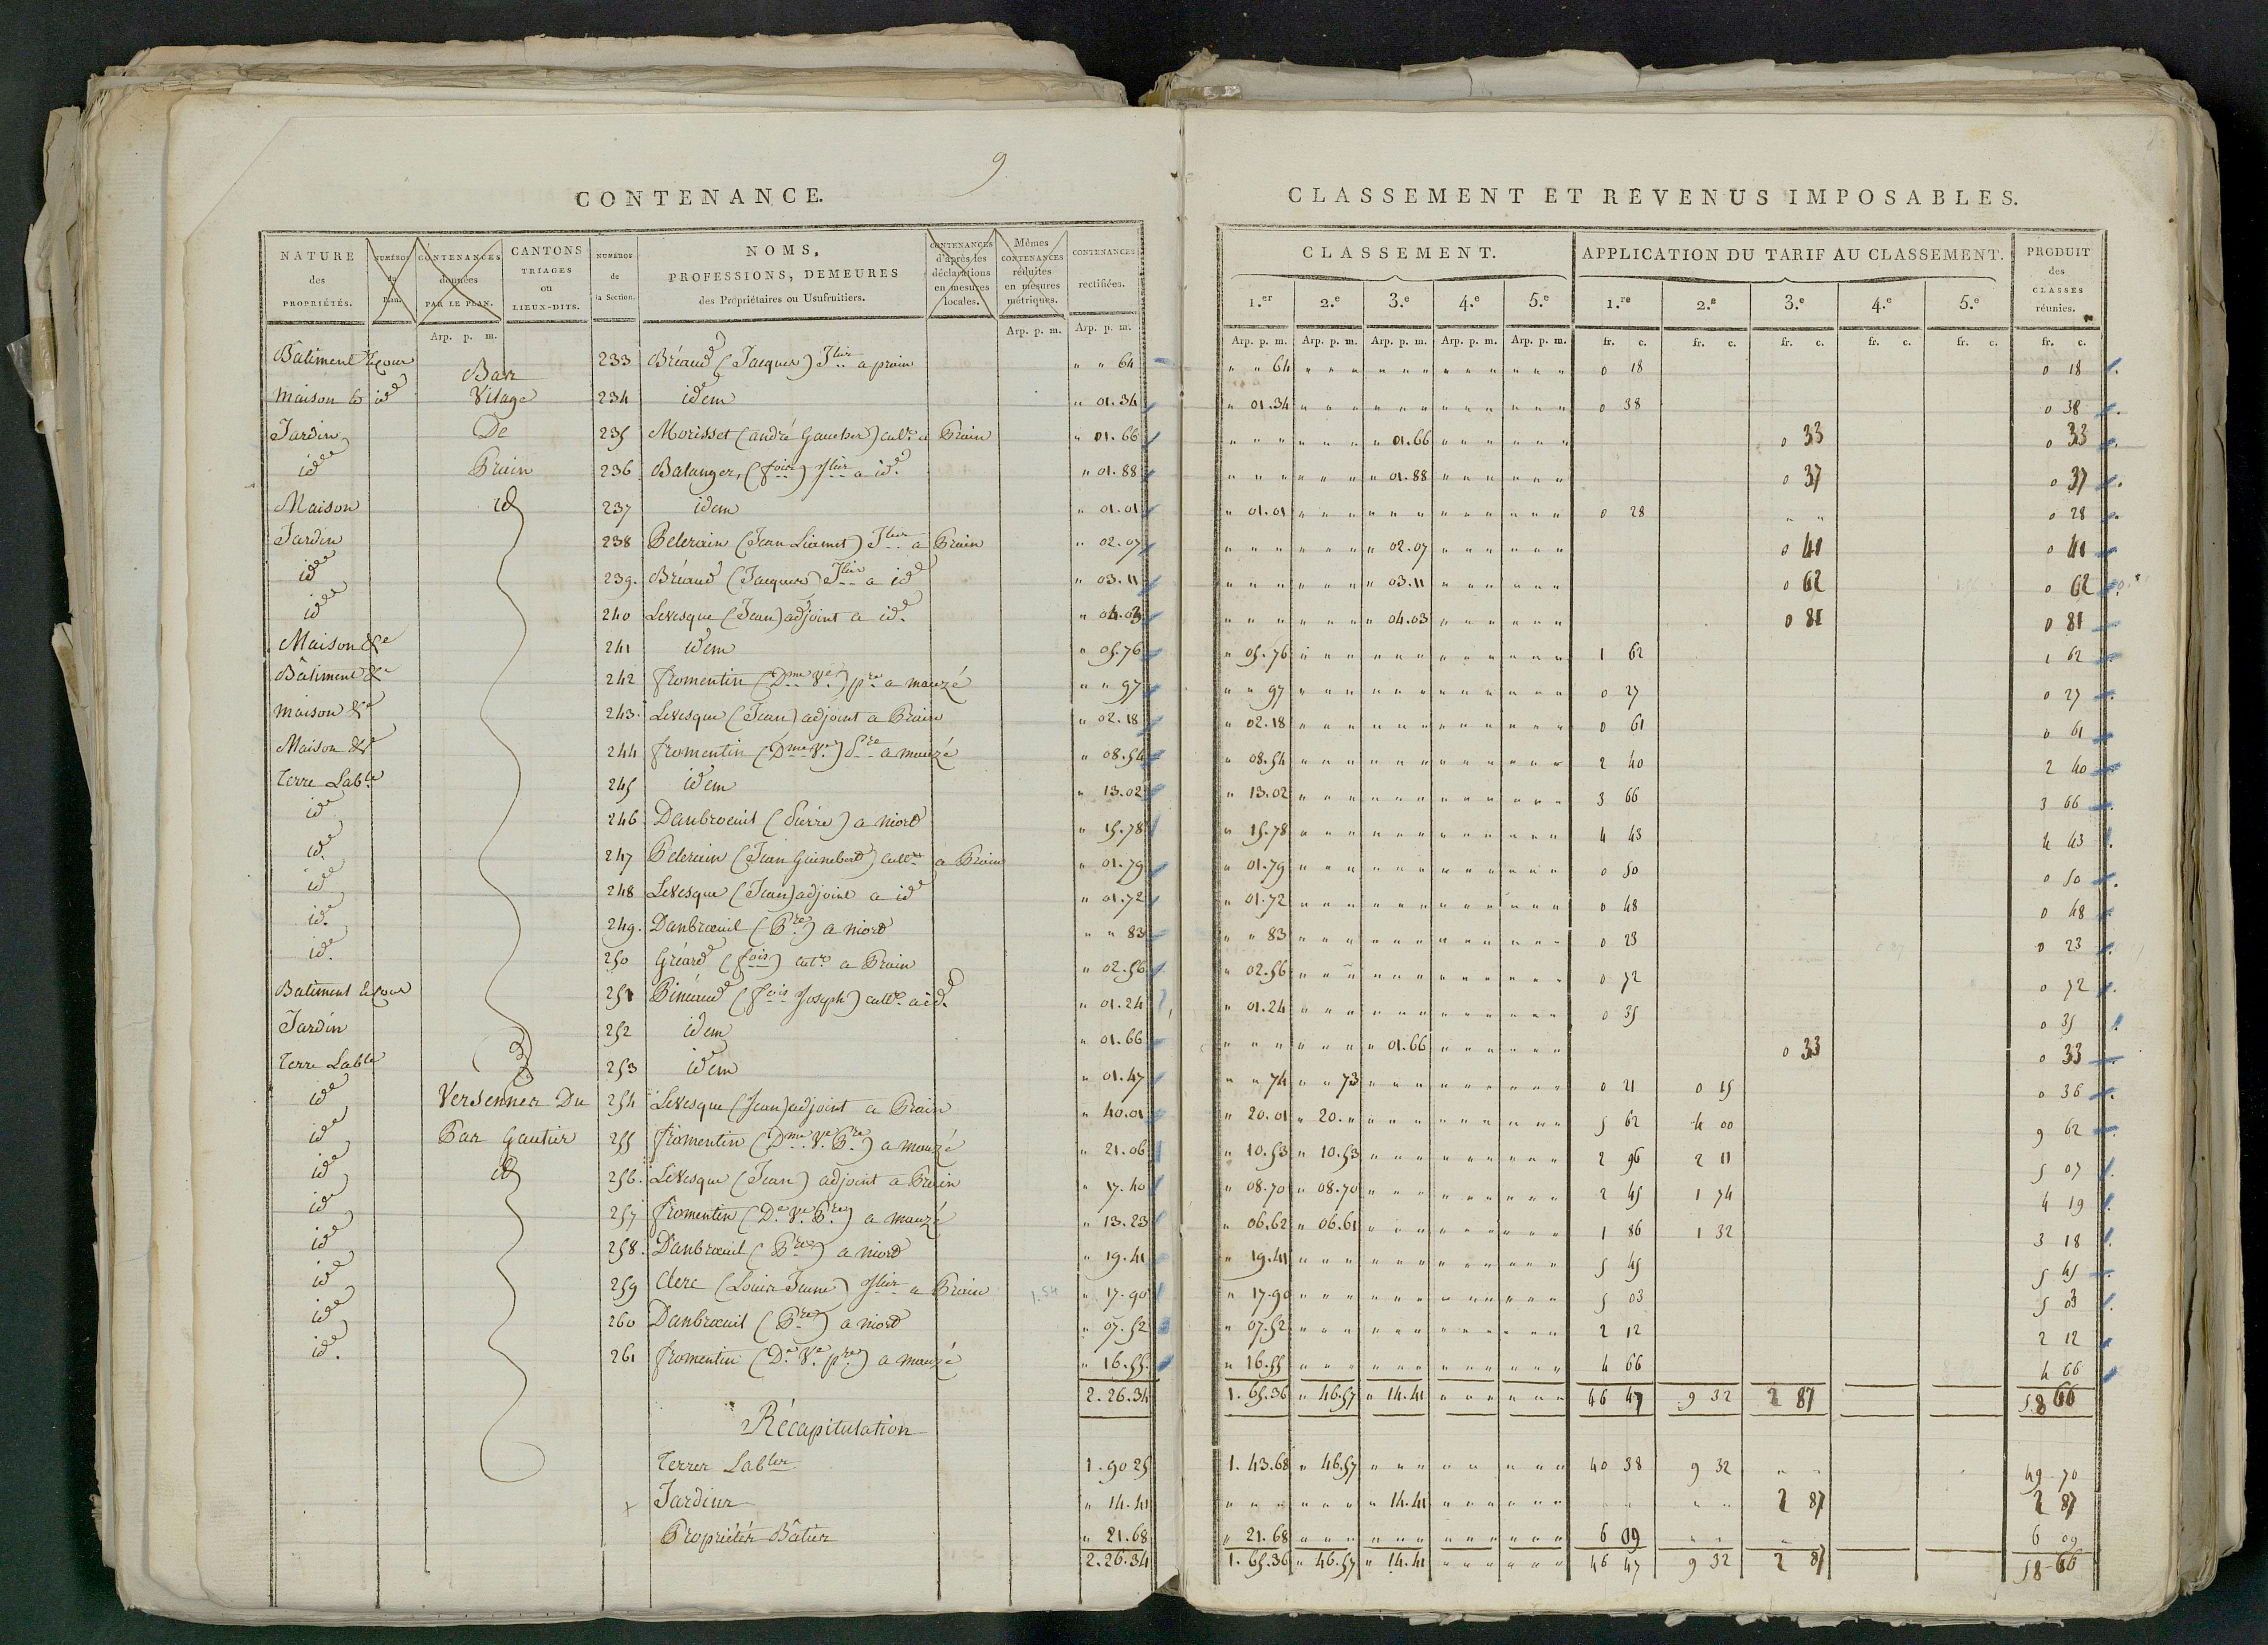 9
CONTENANCE.
NATURE des PROPRIÉTÉS. NUMÉROS du Plan. CONTENANCES données PAR LE PLAN. CANTONS TRIAGES ou LIEUX-DITS. NUMÉROS de la Section. NOMS, PROFESSIONS, DEMEURES des Propriétaires ou Usufruitiers. CONTENANCES d'après les déclarations en mesures locales. Mêmes CONTENANCES réduites en mesures métriques. CONTENANCES rectifiées.
Arp. p. m. Arp. p. m. Arp. p. m.
Bâtiment & cour Bas 233 Bréaud (Jacques) Jlier a prain " " 64
Maison & id Vilage 234 idem " 01.34
Jardin De 235 Morisset (andré Gaucher) cultr a Prain " 01.66
id Prain 236 Balanger, (fois) Jlier a id. " 01.88
Maison id 237 idem " 01.01
Jardin 238 Pelerain (Jean Liamet) Jlier a Prain " 02.07
id 239. Bréaud (Jacques) Jlier a id " 03.11
id 240 Levesque (Jean) adjoint a id. " 04.03
Maison &c 241 idem " 05.76
Bâtiment &c 242 fromentin (Dme Ve) pre a mauzé " " 97
maison &c 243. Levesque (Jean) adjoint a Prain " 02.18
Maison &c 244 fromentin (Dme Ve) Pre a mauzé " 08.54
Terre Lable 245 idem " 13.02
id 246 Danbrœuil (Pierre) a niord " 15.78
id. 247 Pelerain (Jean Guinebert) cultr a Prain " 01.79
id 248 Levesque (Jean) adjoint a id " 01.72
id. 249. Danbrœuil (Pre) a niord " " 83
id. 250 Gréard (fois) cutr a Prain " 02.56
Batiment & cour 251 Binéaud (fois Joseph) cultr a id. " 01.24
Jardin 252 idem " 01.66
Terre Labla 253 idem " 01.47
id Versennes Du 254 Levesque (Jean) adjoint a Prain " 40.01
id Pas Gautier 255 fromentin (Dme Ve Pre) a mauzé " 21.06
id id 256. Levesque (Jean) adjoint a Prain " 17.40
id 257 fromentin (De Ve Pre) a mauzé " 13.23
id 258. Danbrœuil (Pre) a niord " 19.41
id 259 Clerc (Louis Jeune) Jlier a Prain 1.54 " 17.90
id 260 Danbrœuil (Pre) a niord " 07.52
id. 261 fromentin (De Ve pre) a mauzé " 16.55
2.26.34
Récapitulation
Terres Lables 1.90 25
+ Jardins " 14.41
Propriétés Bâties " 21.68
2.26.34
CLASSEMENT ET REVENUS IMPOSABLES.
CLASSEMENT. APPLICATION DU TARIF AU CLASSEMENT. PRODUIT des CLASSES réunies.
1.er 2.e 3.e 4.e 5.e 1.re 2.e 3.e 4.e 5.e
Arp. p. m. Arp. p. m. Arp. p. m. Arp. p. m. Arp. p. m. fr. c. fr. c. fr. c. fr. c. fr. c. fr. c.
" " 64 " " " " " " " " " " " " 0 18 0 18
" 01.34 " " " " " " " " " " " " 0 38 0 38
" " " " " " " 01.66 " " " " " " 0 33 0 33
" " " " " " " 01.88 " " " " " " 0 37 0 37
" 01.01 " " " " " " " " " " " " 0 28 " " 0 28
" " " " " " " 02.07 " " " " " " 0 41 0 41
" " " " " " " 03.11 " " " " " " 0 62 0 62
" " " " " " " 04.03 " " " " " " 0 81 0 81
" 05.76 " " " " " " " " " " " " 1 62 1 62
" " 97 " " " " " " " " " " " " 0 27 0 27
" 02.18 " " " " " " " " " " " " 0 61 0 61
" 08.54 " " " " " " " " " " " " 2 40 2 40
" 13.02 " " " " " " " " " " " " 3 66 3 66
" 15.78 " " " " " " " " " " " " 4 43 4 43
" 01.79 " " " " " " " " " " " " 0 50 0 50
" 01.72 " " " " " " " " " " " " 0 48 0 48
" " 83 " " " " " " " " " " " " 0 23 0 23
" 02.56 " " " " " " " " " " " " 0 72 0 72
" 01.24 " " " " " " " " " " " " 0 35 0 35
" " " " " " " 01.66 " " " " " " 0 33 0 33
" " 74 " " 73 " " " " " " " " " 0 21 0 15 0 36
" 20.01 " 20. " " " " " " " " " " 5 62 4 00 9 62
" 10.53 " 10.53 " " " " " " " " " 2 96 2 11 5 07
" 08.70 " 08.70 " " " " " " " " " 2 45 1 74 4 19
" 06.62 " 06.61 " " " " " " " " " 1 86 1 32 3 18
" 19.41 " " " " " " " " " " " " 5 45 5 45
" 17.90 " " " " " " " " " " " " 5 03 5 03
" 07.52 " " " " " " " " " " " " 2 12 2 12
" 16.55 " " " " " " " " " " " " 4 66 4 66
1.65.36 " 46.57 " 14.41 " " " " " " 46 47 9 32 2 87 58 66
1.43.68 " 46.57 " " " " " " " " " 40 38 9 32 " " 49 70
" " " " " " " 14.41 " " " " " " " " " " 2 87 2 87
" 21.68 " " " " " " " " " " " " 6 09 " " " 6 09
1.65.36 " 46.57 " 14.41 " " " " " " 46 47 9 32 2 87 58 66